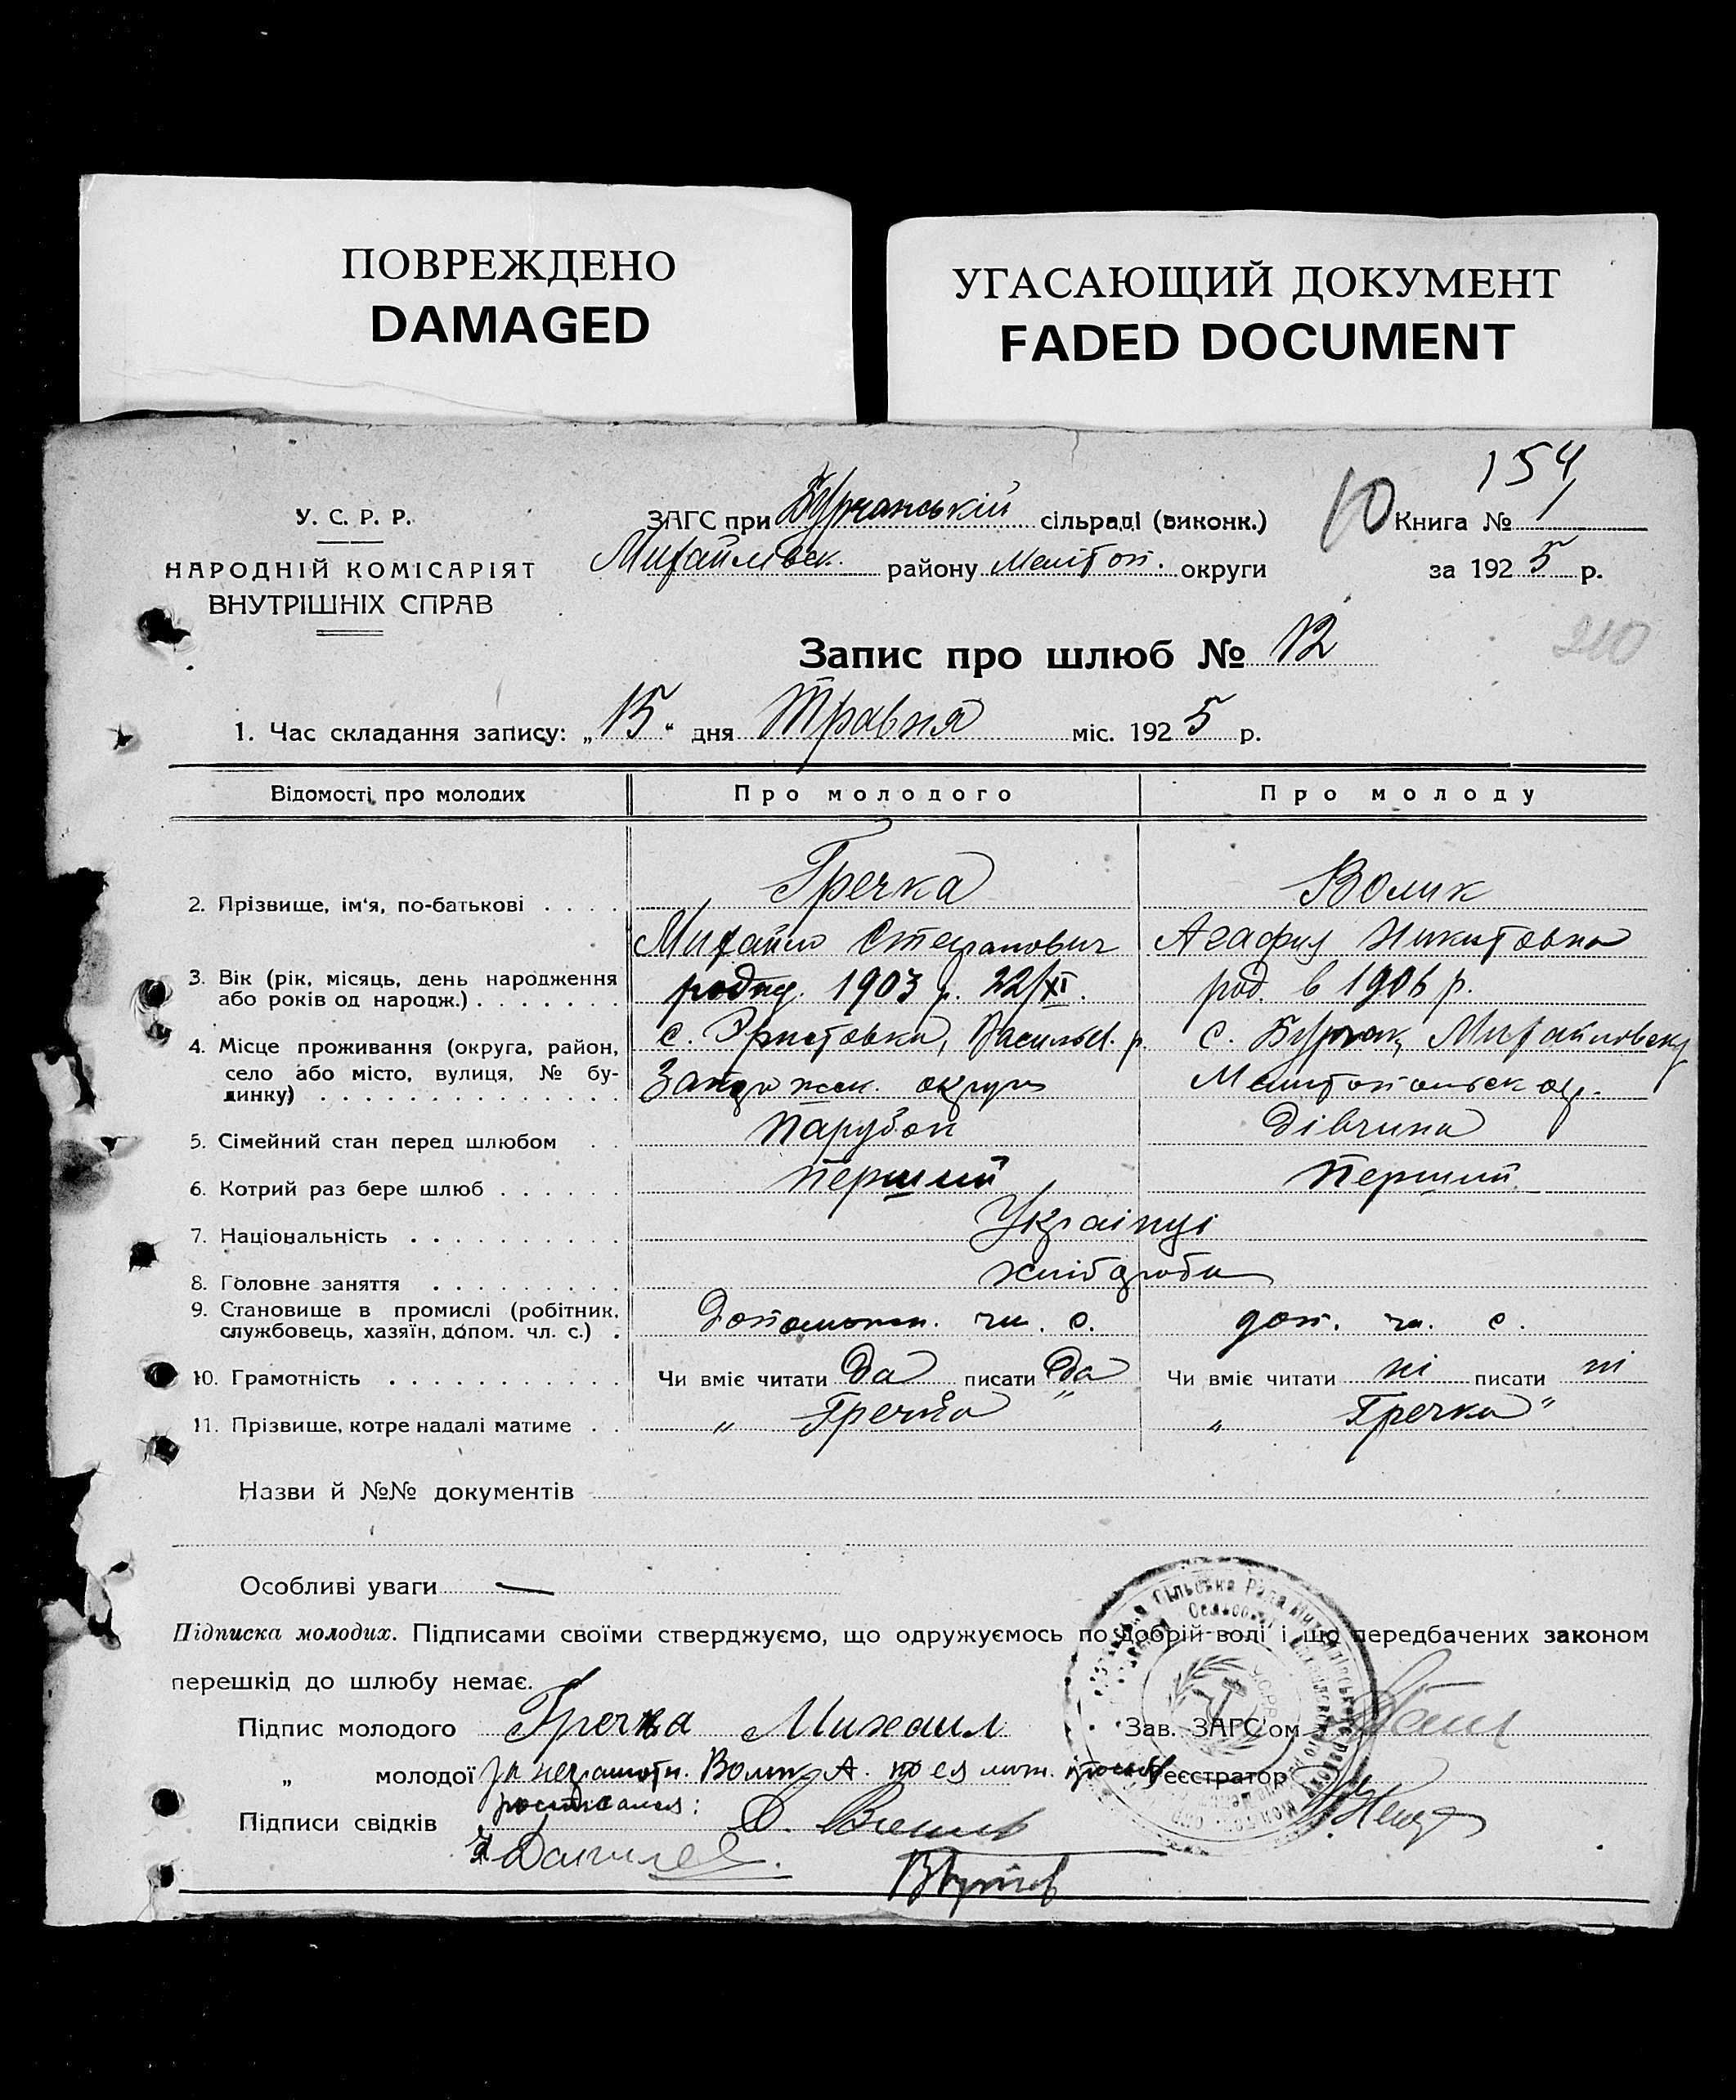 ПОВРЕЖДЕНО
DAMAGED
УГАСАЮЩИЙ ДОКУМЕНТ
FADED DOCUMENT
154
У. С. Р. Р.
НАРОДНІЙ КОМІСАРІЯТ
ВНУТРІШНІХ СПРАВ
ЗАГС при Бурчанській сільраді (виконк.)
Михайлівск. району Мелітоп. округи
10 Книга № 1
за 1925 р.
Запис про шлюб № 12
210
1. Час складання запису: „15" дня Травня міс. 1925 р.
Відомості про молодих Про молодого Про молоду
2. Прізвище, ім'я, по-батькові . . . . Гречка Волик
Михайло Степанович Агафия Никитовна
3. Вік (рік, місяць, день народження або років од народж.) . . . . . . . 1903 р. 22/XI. род. в 1906 р.
4. Місце проживання (округа, район, село або місто, вулиця, № будинку) . . . . . . . . . . . . . . с. Христовка, Васильев. р. с. Бурчак, Михайловск
округи
5. Сімейний стан перед шлюбом . . Парубок Дівчина
6. Котрий раз бере шлюб . . . . . . Перший Перший
7. Національність . . . . . . . . . . Українці
8. Головне заняття . . . . . . . . . хлібороби
9. Становище в промислі (робітник, службовець, хазяїн, допом. чл. с.) . чл. с. доп. чл. с.
10. Грамотність . . . . . . . . . . . Чи вміє читати Да писати Да Чи вміє читати ні писати ні
11. Прізвище, котре надалі матиме . . „ Гречка " „ Гречка "
Назви й №№ документів
Особливі уваги —
Підписка молодих. Підписами своїми стверджуємо, що одружуємось по добрій волі і що передбачених законом
перешкід до шлюбу немає.
Підпис молодого Гречка Михаил Зав. ЗАГС'ом
„ молодої за неграмотн. Волик А. по ея личн. просьбе Реєстратор
росписался:
Підписи свідків
УСРР